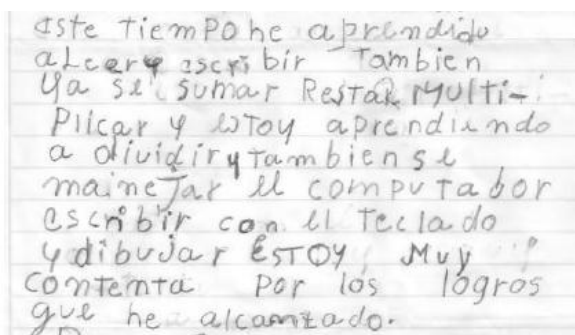 este tiempo he aprendido
a Leer y escribir Tambien
Ya se sumar Restar Multi-
Plicar y estoy aprendiendo
a dividir y Tambien se
mainejar el computador
escribir con el Teclado
y dibujar ESTOY Muy
contenta Por los logros
que he alcanzado.